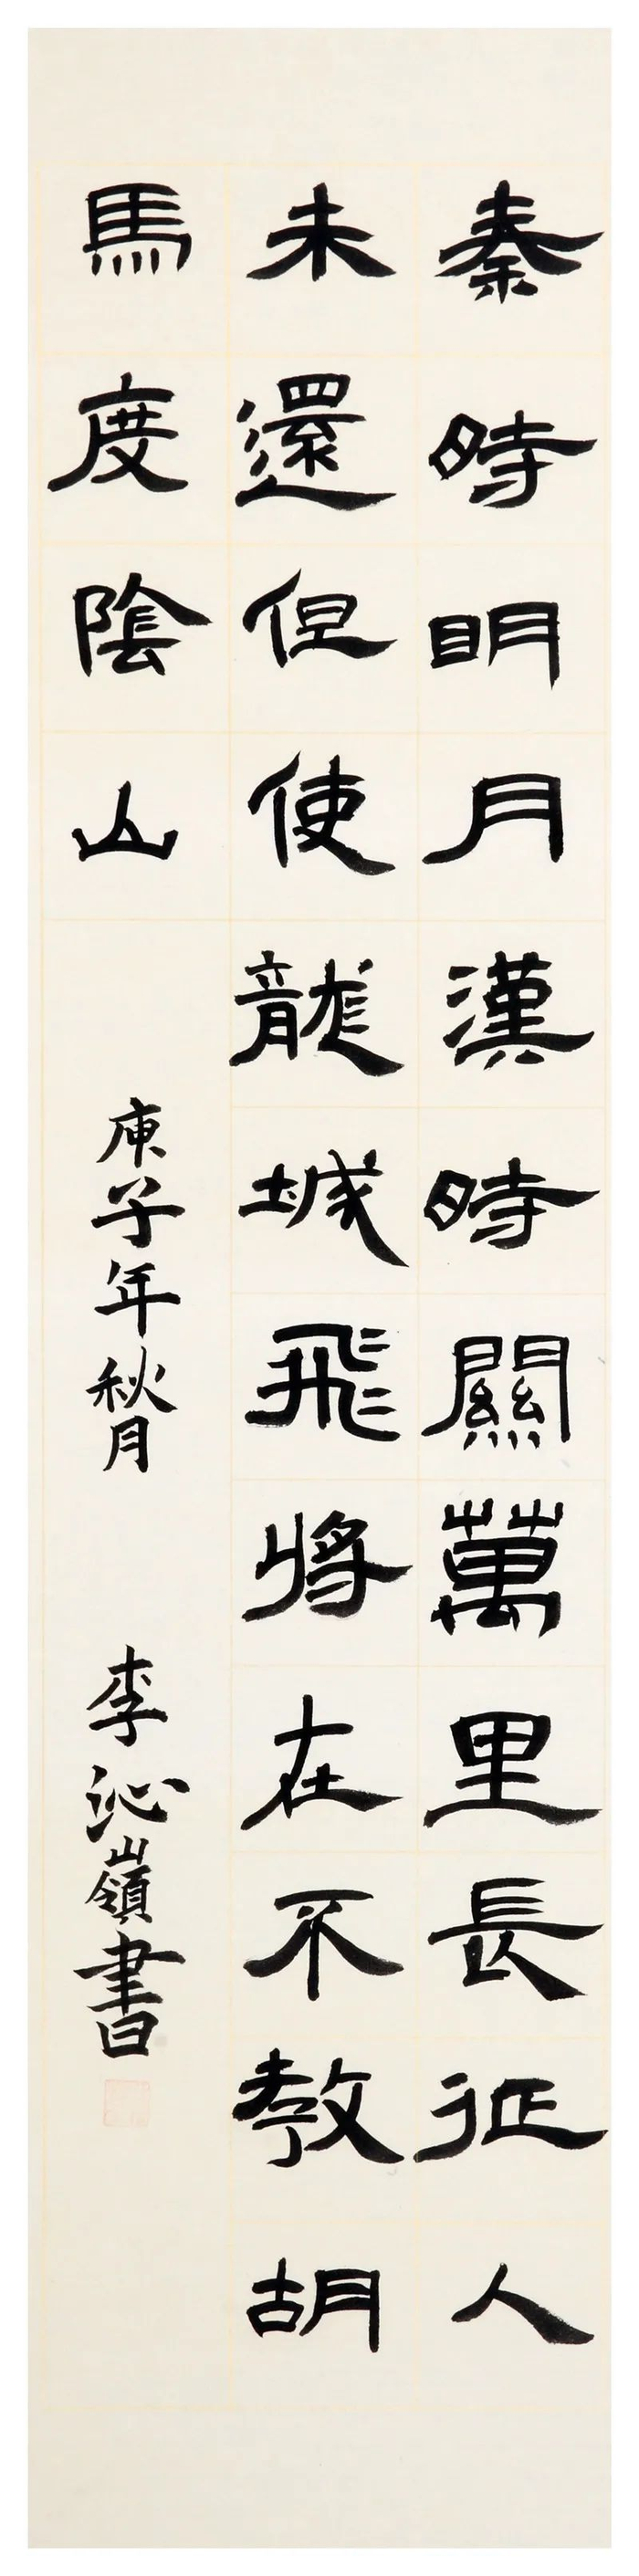 秦時明月漢時關萬里長征人
未還但使龍城飛將在不教胡
馬度陰山
庚子年秋月 李沁嶺書